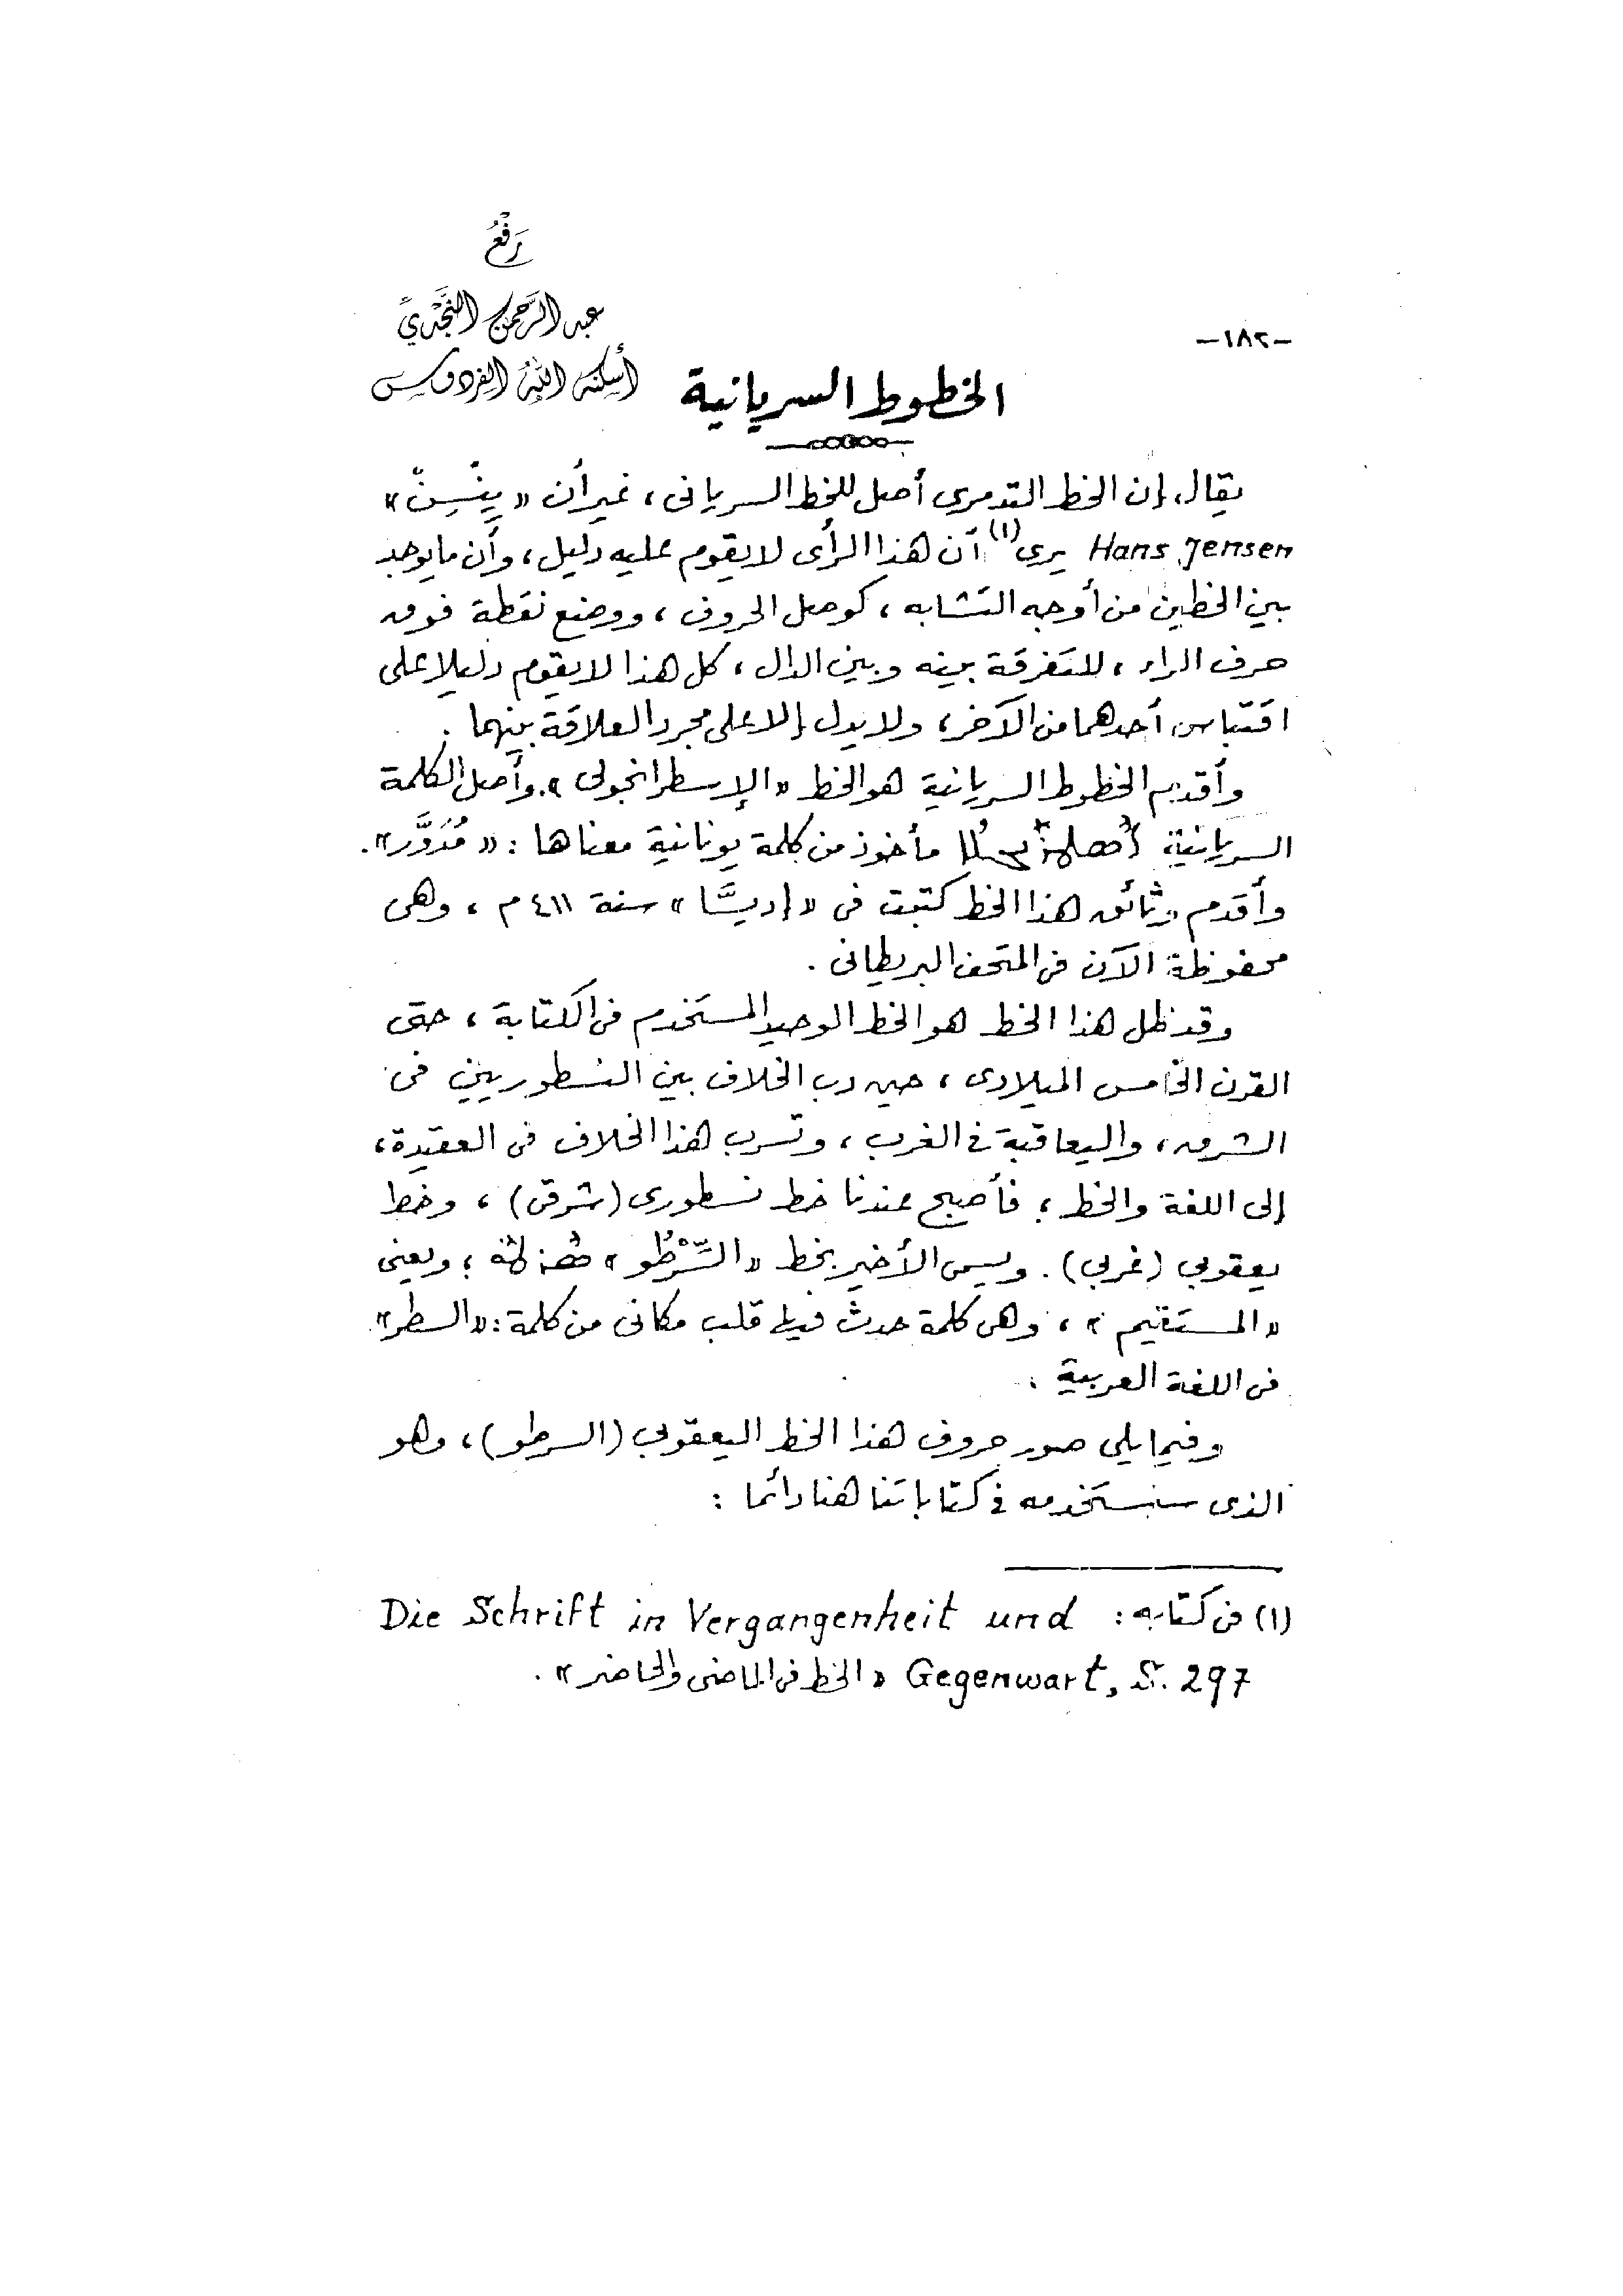 رَفْعُ
عبد الرَّحمن النَّجْديّ
أسكنه الله الفردوس
-١٨٢-
الخطوط السريانية
يقال إن الخط التدمرى أصل للخط السريانى ، غير أن « يِنْسِنْ »
Hans Jensen يرى(١) أن هذا الرأى لا يقوم عليه دليل ، وأن ما يوجد
بين الخطين من أوجه التشابه ، كوصل الحروف ، ووضع نقطة فوق
حرف الراء ، للتفرقة بينه وبين الدال ، كل هذا لا يقوم دليلا على
اقتباس أحدهما من الآخر ، ولا يدل إلا على مجرد العلاقة بينهما .
وأقدم الخطوط السريانية هو الخط « الإسطرانجولى » . وأصل الكلمة
السريانية مأخوذ من كلمة يونانية معناها : « مُدَوَّر » .
وأقدم وثائق هذا الخط كتبت فى « إديسَّا » سنة ٤١١ م ، وهى
محفوظة الآن فى المتحف البريطانى .
وقد ظل هذا الخط هو الخط الوحيد المستخدم فى الكتابة ، حتى
القرن الخامس الميلادى ، حين دب الخلاف بين النسطوريين فى
الشرق ، واليعاقبة فى الغرب ، وتسرب هذا الخلاف فى العقيدة ،
إلى اللغة والخط ؛ فأصبح عندنا خط نسطورى (شرقى) ، وخط
يعقوبى (غربى) . ويسمى الأخير بخط « السَّرْطُو » ܣܶܪܛܳܐ ؛ ويعنى
« المستقيم » ، وهى كلمة حدث فيها قلب مكانى من كلمة : « السطر »
فى اللغة العربية .
وفيما يلى صور حروف هذا الخط اليعقوبى (السرطو) ، وهو
الذى سنستخدمه فى كتاباتنا هنا دائما :
(١) فى كتابه : Die Schrift in Vergangenheit und
Gegenwart, S. 297 « الخط فى الماضى والحاضر » .